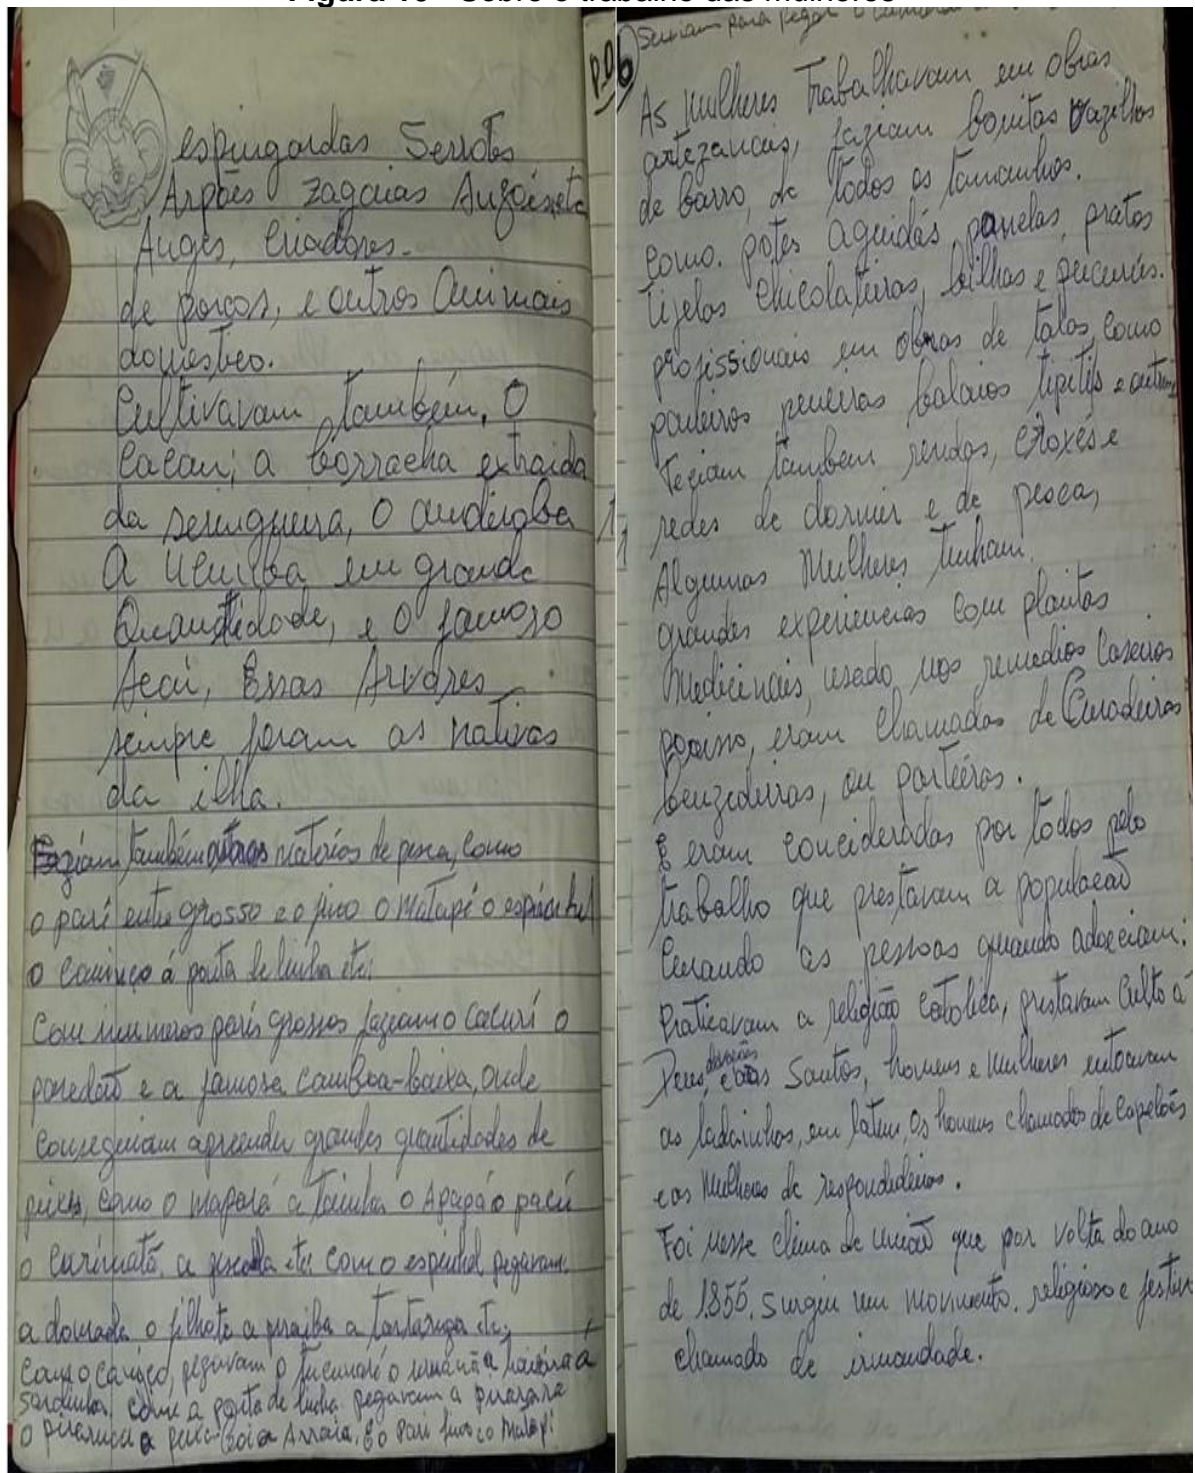 Sobre o trabalho das mulheres
espingardas Serrotes
Arpões zagaias Anzóis etc
criadores.
de porcos, e outros Animais
domestico.
Cultivavam também, O
Cacau; a borracha extraida
da seringueira, O andiroba
A Ucuúba em grande
Quantidade, e O famozo
Açaí, Essas Arvores
sempre foram as nativas
da ilha.
Faziam, também outros matérios de pesca, como
o pari entre grosso e o fino o Matapí o espinhel
o caniço á ponta de linha etc;
Com inumeros paris grossos faziam o Cacurí o
paredão e a famosa camboa-baixa, onde
conseguiam apreender grandes quantidades de
peixes, como o mapará a tainha o Apapá o pacú
o curimatã, a pescada etc; com o espinhel pegavam
a dourada o filhote a piraíba a tartaruga etc;
Com o caniço, pegavam o tucunaré o a traíra a
sardinha, com a ponta de linha pegavam a pirarara
o pirarucu a peixe-boi a Arraia. E o Pari fino e o Matapí
P.06
Serviam para pegar o camarão
As Mulheres Trabalhavam em obras
artezanais, faziam bonitas vazilhas
de barro, de todos os tamanhos.
Como. potes aguidás, panelas, pratos
tijelas chicolateiras, bilhas e
profissionais em obras de talas, como
paneiros peneiras balaios tipitís e outros
Teciam também rendas, cróxés e
redes de dormir e de pesca,
Algumas Mulheres tinham.
grandes experiencias com plantas
Medicinais, usado nos remedios Caseiros
porisso, eram chamadas de Curadeiras
benzedeiras, ou parteiras.
E eram concideradas por todos pelo
trabalho que prestavam a população
Curando as pessoas quando adoeciam:
Praticavam a religião católica, prestavam culto a
Deus, devoções aos Santos, homens e mulheres entoavam
as ladainhas, em latim, Os homens chamados de Capelões
e as Mulheres de respondedeiras.
Foi nesse clima de união que por volta do ano
de 1855, Surgiu um movimento. religioso e festivo
chamado de irmandade.